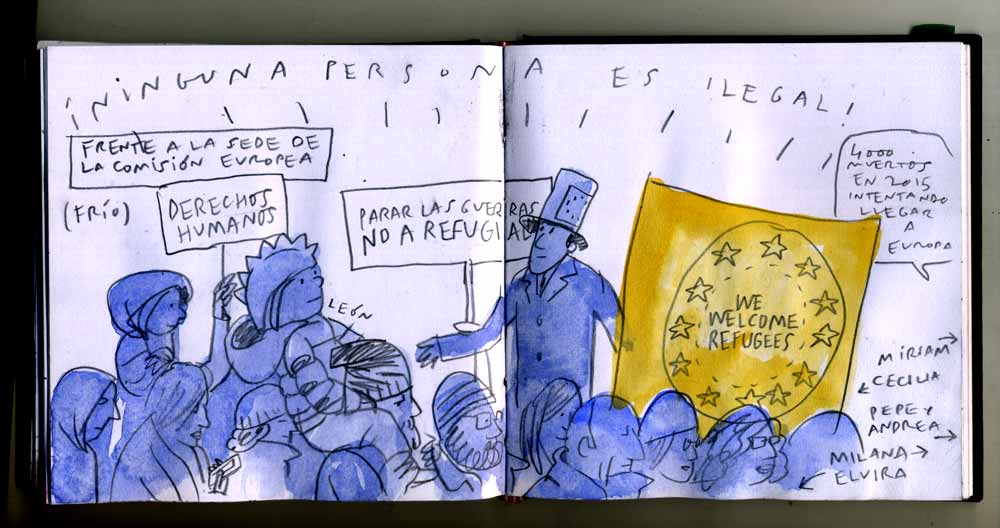 ¡NINGUNA PERSONA ES ILEGAL!
FRENTE A LA SEDE DE
LA COMISIÓN EUROPEA
(FRÍO)
DERECHOS
HUMANOS
PARAR LAS GUERRAS
NO A REFUGIAD
LEÓN
WE
WELCOME
REFUGEES
4000
MUERTOS
EN 2015
INTENTANDO
LLEGAR
A
EUROPA
MIRIAM
CECILIA
PEPE Y
ANDREA
MILANA
ELVIRA